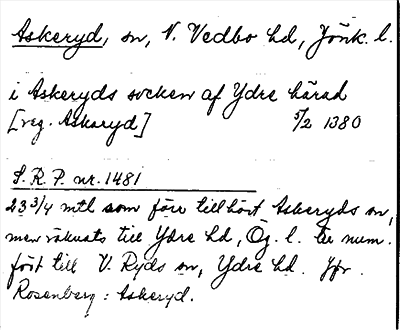 Askeryd, sn, N. Vedbo hd, Jönk. l.
i Askeryds socken af Ydre härad
[reg. Askaryd] 5/2 1380
S.R.P. nr. 1481
23 3/4 mtl som före tillhört Askeryds sn,
men räknats till Ydre hd, Ög. l. är num.
fört till V. Ryds sn, Ydre hd. Jfr
Rosenberg: Askeryd.